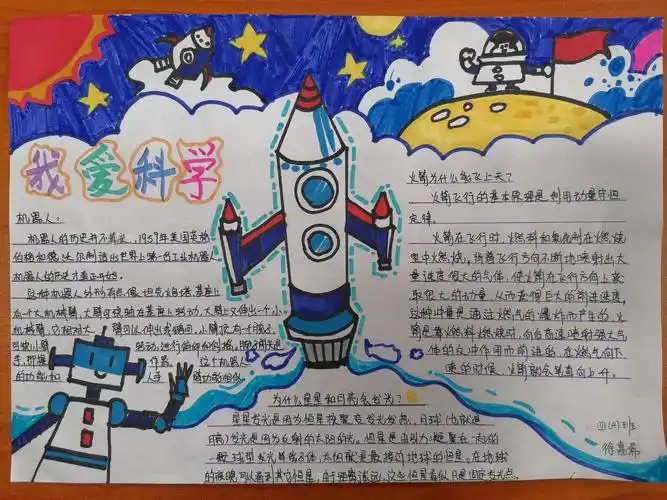 我爱科学
机器人:
机器人的历史并不算长,1959年美国英格
伯格和德沃尔制造出世界上第一台工业机器人
机器人的历史才真正开始。
这种机器人外形有点像坦克炮塔,基座上
有一个大机械臂,大臂可绕轴在基座上转动,大臂上又伸出一个小
机械臂,它相对大 臂可以伸出或缩回。小臂顶有一个腕子
可绕小臂 转动,进行俯仰和侧摇。腕子前头是
手,即操 作器。 这个机器人
的功能和 人手 臂功能相似
火箭为什么能飞上天?
火箭飞行的基本原理是利用动量守恒
定律。
火箭在飞行时,燃料和氧化剂在燃烧
室中燃烧,背着飞行方向不断地喷射出大
量速度很大的气体,使火箭在飞行方向上获
取很大的动量,从而获得巨大的前进速度,
这种冲量是通过燃气的爆炸而产生的,火
箭是靠燃料燃烧时,向后高速喷射强大气
体的反冲作用而前进的,在燃气向下
喷的时候,火箭就会笔直向上升。
为什么星星和月亮会发光?
星星发光是因为恒星核聚变发光发热,月球(也就是
月亮)发光是因为反射的太阳的光。恒星是由引力凝聚在一起的
一颗球型发光等离子体,太阳就是最接近地球的恒星。在地球
的夜晚可以看到其它恒星,由于距离遥远,这些恒星看似只是固定发光点。
班
徐嘉希